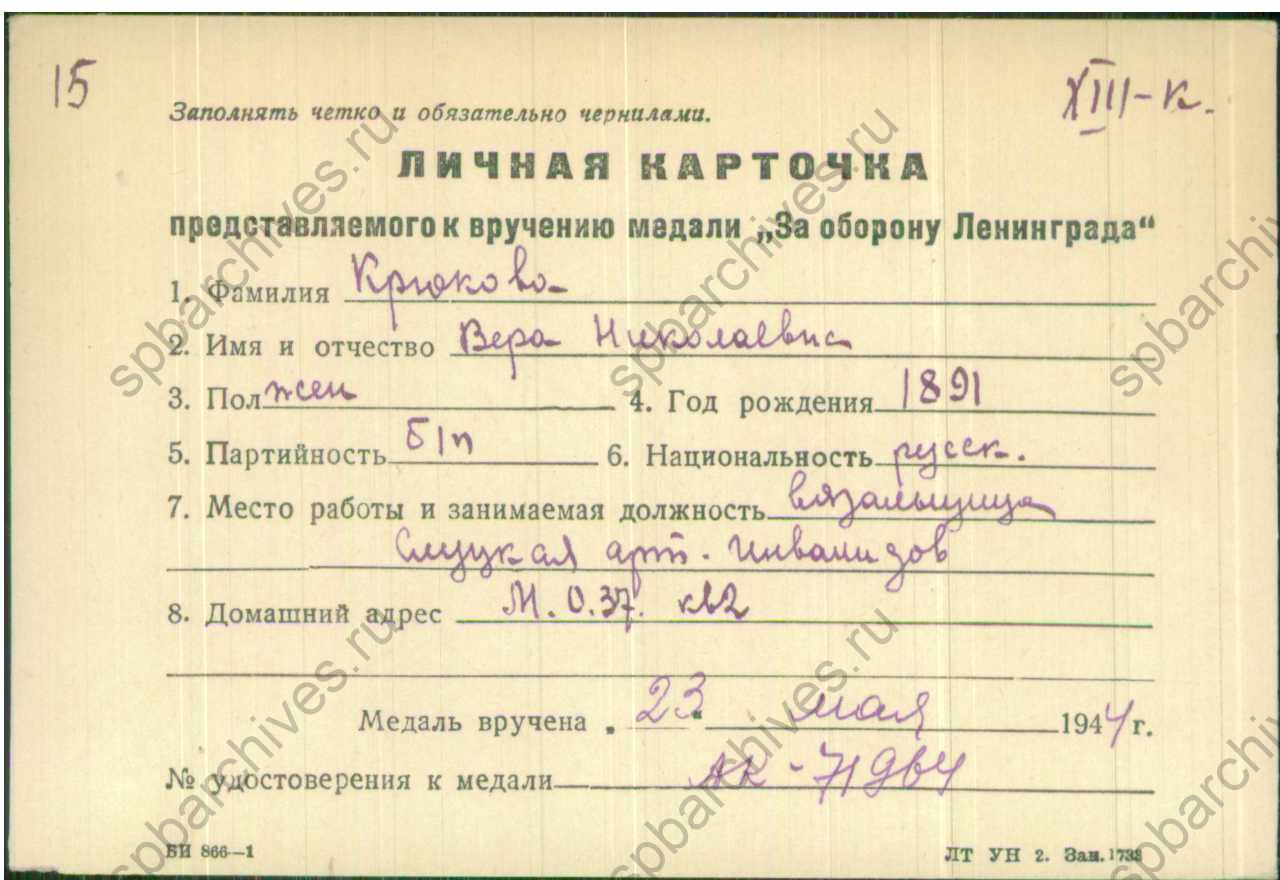 15
XIII-к.
Заполнять четко и обязательно чернилами.
ЛИЧНАЯ КАРТОЧКА
представляемого к вручению медали „За оборону Ленинграда“
1. Фамилия Крюкова
2. Имя и отчество Вера Николаевна
3. Пол жен 4. Год рождения 1891
5. Партийность б/п 6. Национальность русск.
7. Место работы и занимаемая должность вязальщица
Слуцкая арт. Инвалидов
8. Домашний адрес М.О.37. кв2
Медаль вручена „ 23 " мая 1944 г.
№ удостоверения к медали АК-71964
БИ 866—1
ЛТ УН 2. Зак. 1738
spbarchives.ru